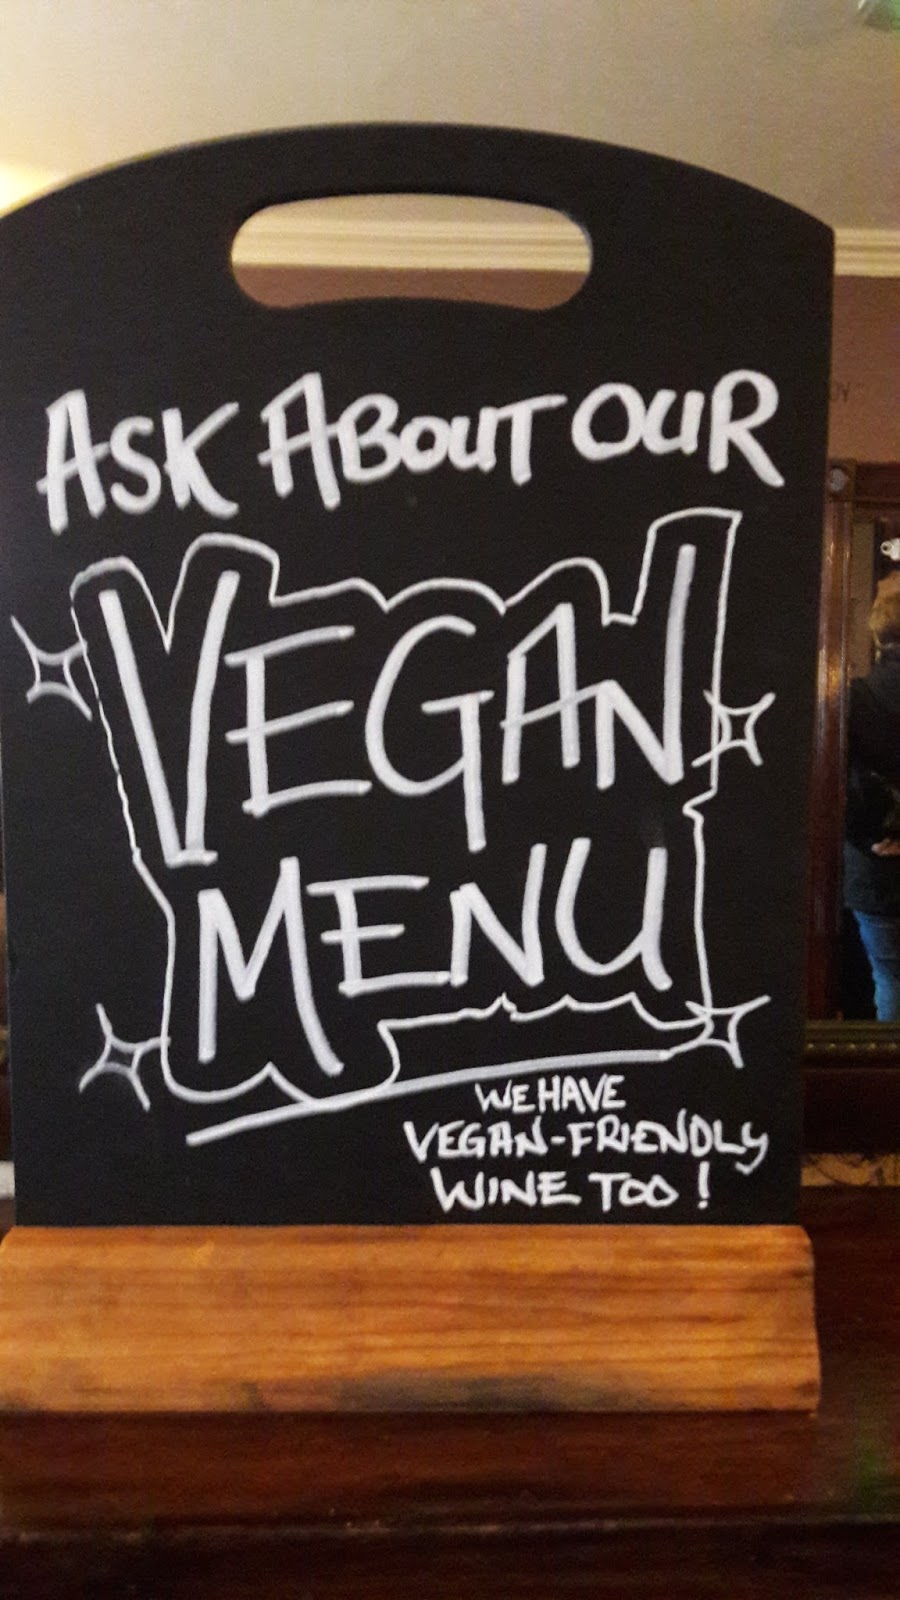 ASK ABOUT OUR
VEGAN
MENU
WE HAVE
VEGAN-FRIENDLY
WINE TOO!